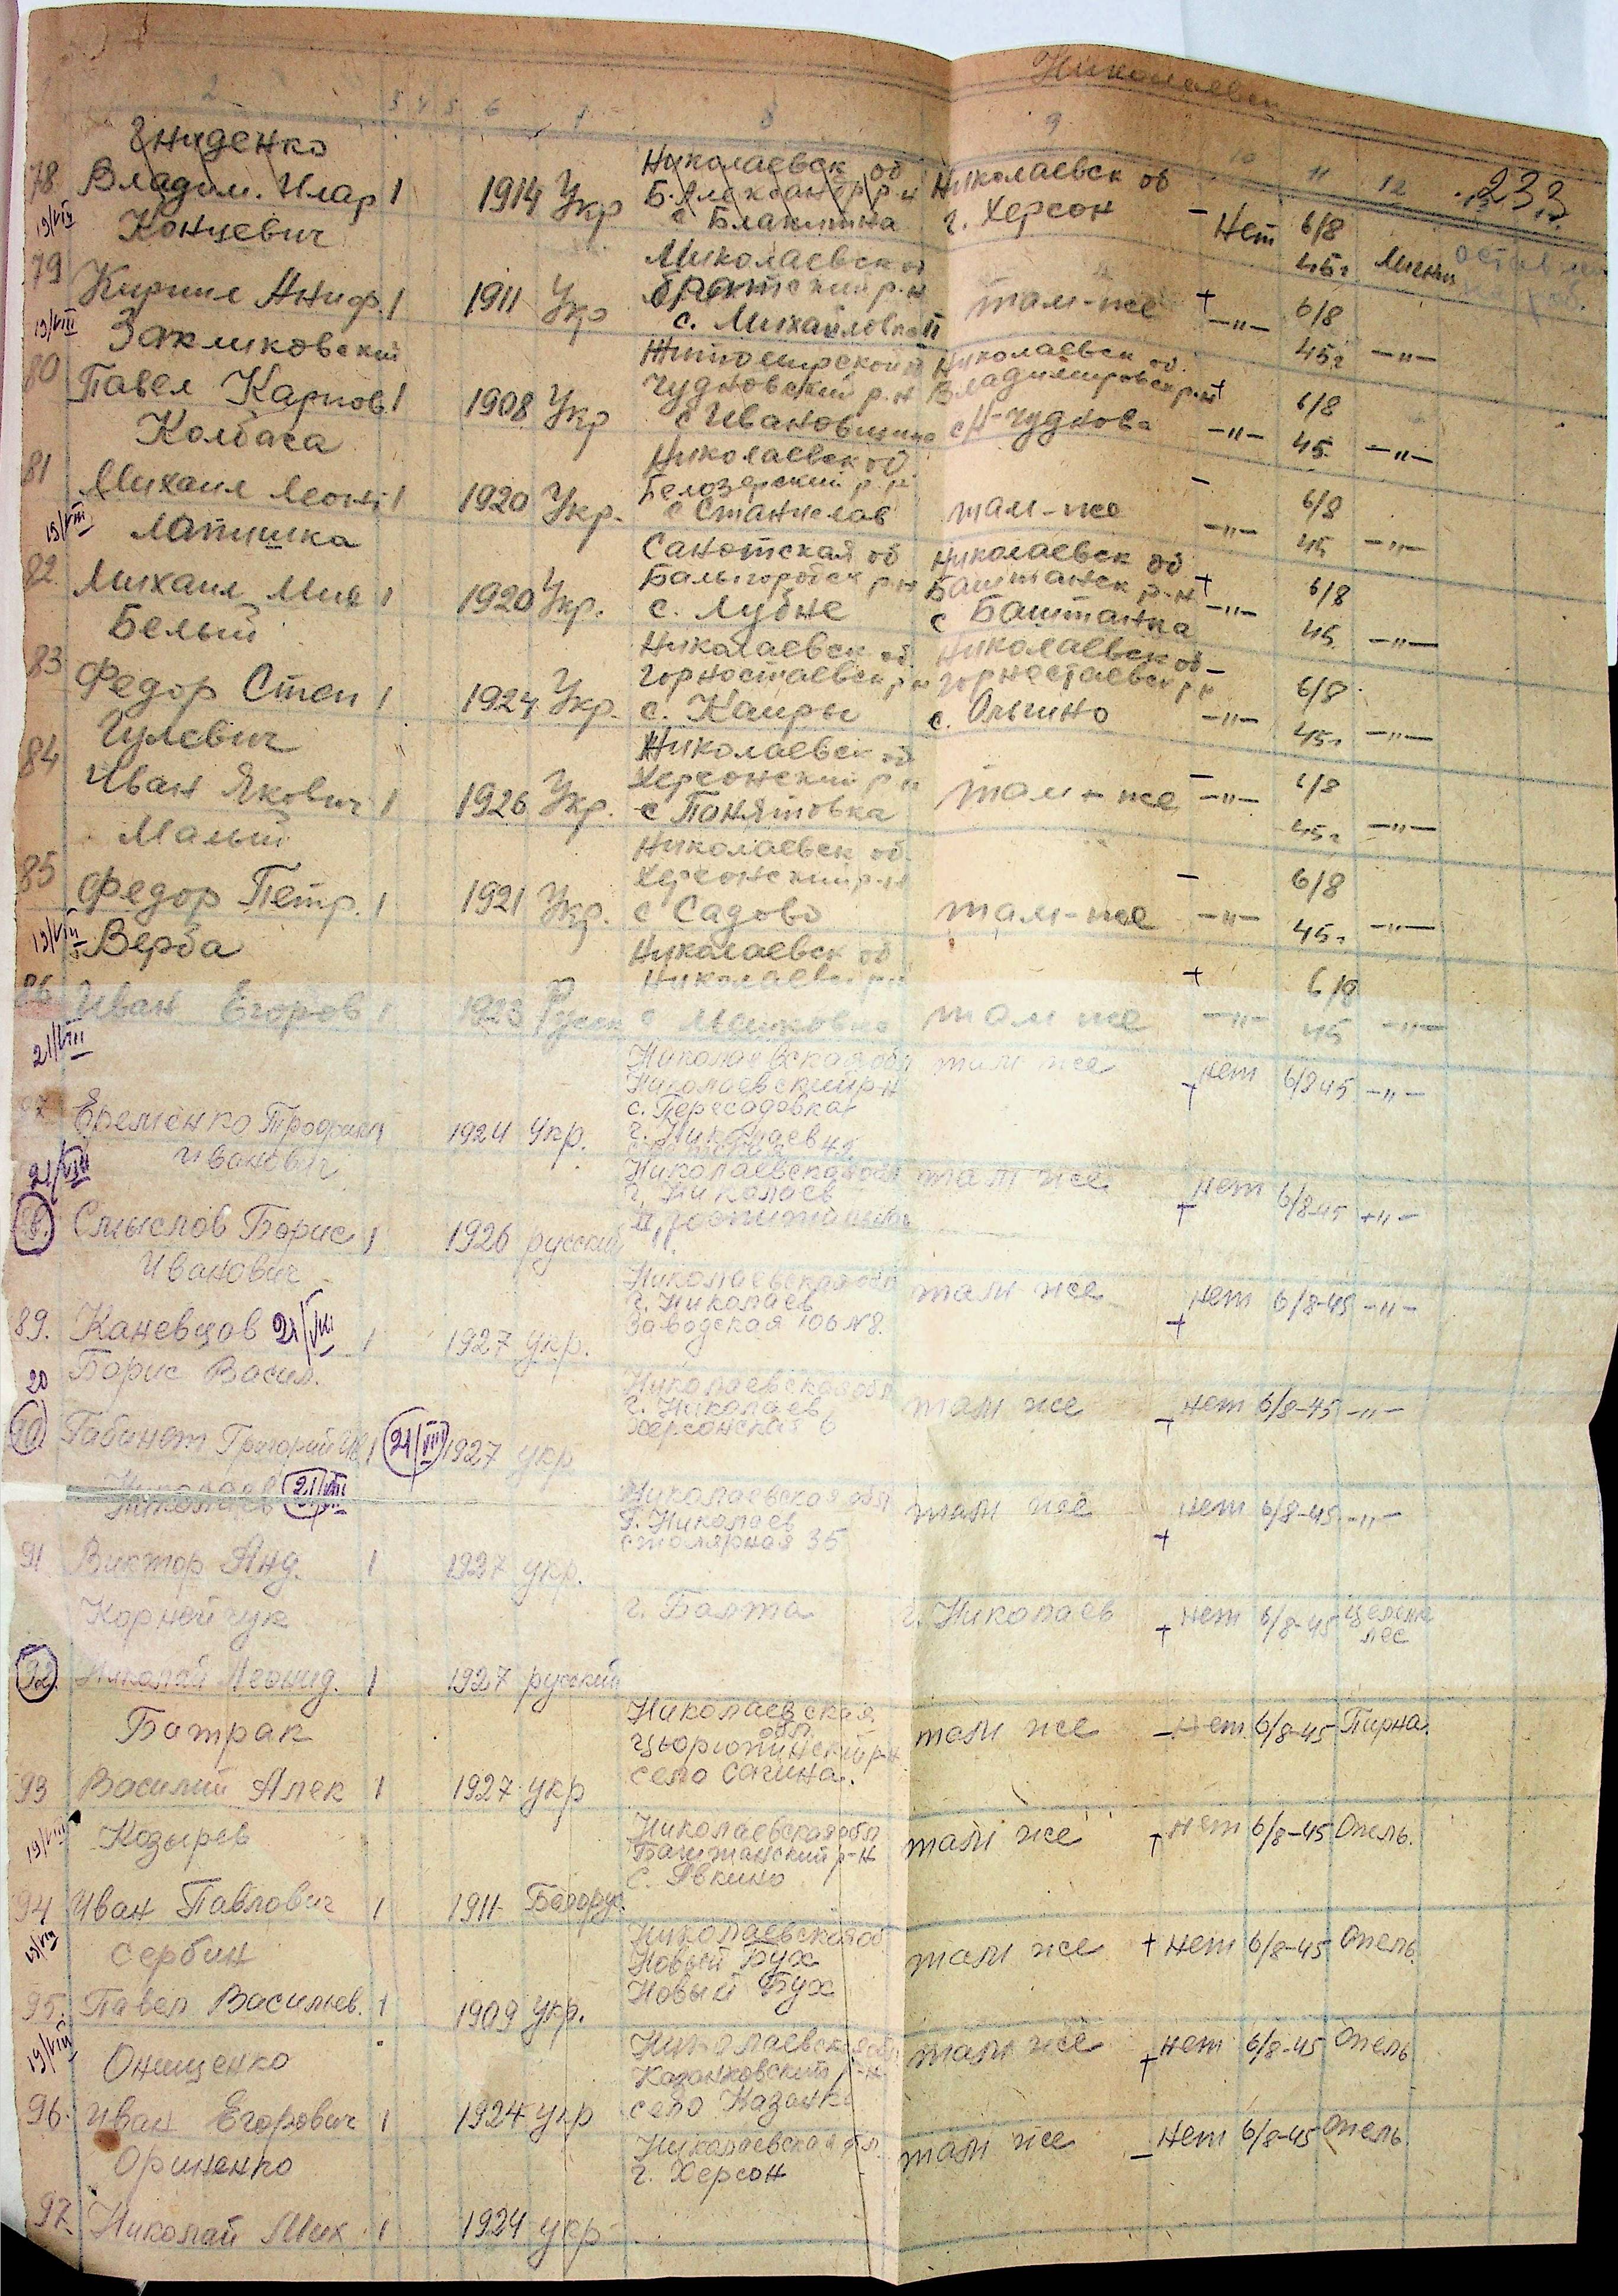 Николаевск
2 3 4 5 6 7 8 9 10 11 12
233
Гниденко
78 Владим. Илар 1 1914 Укр
Николаевск об
Б. Александр р-н
с Благитна
Николаевск об
г. Херсон
- Нет 6/8
45г
остав
19/VIII
Концевич
79 Кирилл Аниф. 1 1911 Укр
Николаевск о
Братский р-н
с. Михайловка II
там-же + -"- 6/8
45г -"-
19/VIII
Закликовский
80 Павел Карпов. 1 1908 Укр
Житомирской о
Чудновский р-н
с Ивановщина
Николаевск об.
Владимировск р-н
с Н-Чуднова
+ -"- 6/8
45 -"-
Колбаса
81 Михаил Леонт 1 1920 Укр.
Николаевск об.
Белозерский р-н
с Станислав
там-же - -"- 6/8
45 -"-
19/VIII
Лапишка
82. Михаил Мих 1 1920 Укр.
Санотская об
Балыгородск р-н
с. Лубне
Николаевск об
Баштанск р-н
с Баштанка
+ -"- 6/8
45. -"-
Белый
83 Федор Степ 1 1924 Укр.
Николаевск об.
Горностаевск р-н
с. Каиры
Николаевск об
Горностаевск р-н
с. Ольгино
- -"- 6/8
45г -"-
Гулевич
84 Иван Якович 1 1926 Укр.
Николаевск об
Херсонский р-н
с Понятовка
там-же - -"- 6/8
45г -"-
Малый
85 Федор Петр. 1 1921 Укр.
Николаевск об.
Херсонский р-н
с Садово
там-же - -"- 6/8
45г -"-
19/VIII
Верба
86 Иван Егоров 1 1923 Русск
Николаевск об
Николаевск р-н
с
там же + -"- 6/8
45 -"-
21/VIII
87 Еременко Трофим 1 1924 Укр.
Иванович
Николаевская обл
Николаевский р-н
с. Пересадовка
г. Николаев
42
там же + нет 6/8 45 -"-
21/VIII
88. Смыслов Борис 1 1926 русский
Иванович
Николаевская обл
г. Николаев
II
там же + нет 6/8-45 -"-
89. Каневцов 21/VIII 1 1927 укр.
Борис Васил.
Николаевская обл
г. Николаев
Заводская 106 №8.
там же + нет 6/8-45 -"-
20
90 Габинет Григорий Ив 1 21/VIII 1927 укр
Николаевская обл
г. Николаев
Херсонская 6
там же + нет 6/8-45 -"-
Николаев 21/VIII
91 Виктор Анд. 1 1927 укр.
Николаевская обл
г. Николаев
столярная 35
там же + нет 6/8-45 -"-
Корнейчук
92. Николай Леонид. 1 1927 русский
г. Балта г. Николаев + нет 6/8-45
лес
Батрак
93 Василий Алек 1 1927 укр
Николаевская
обл.
Цюрюпинский р-н
село Сагина.
там же - нет 6/8-45 Пирна.
19/VIII
Козырев
94 Иван Павлович 1 1911 Белорус.
Николаевская обл
Баштанский р-н
с. Явкино
там же + нет 6/8-45 Опель.
19/VIII
Сербин
95. Павел Васильев. 1 1909 укр.
Николаевская об.
Новый Буг
Новый Буг
там же + нет 6/8-45 Опель.
19/VIII
Онищенко
96. Иван Егорович 1 1924 укр
Николаевская обл
Казанковский р-н
село Казанки
там же + нет 6/8-45 Опель
Ориненко
97. Николай Мих 1 1924 укр
Николаевская обл.
г. Херсон
там же - Нет 6/8-45 Опель